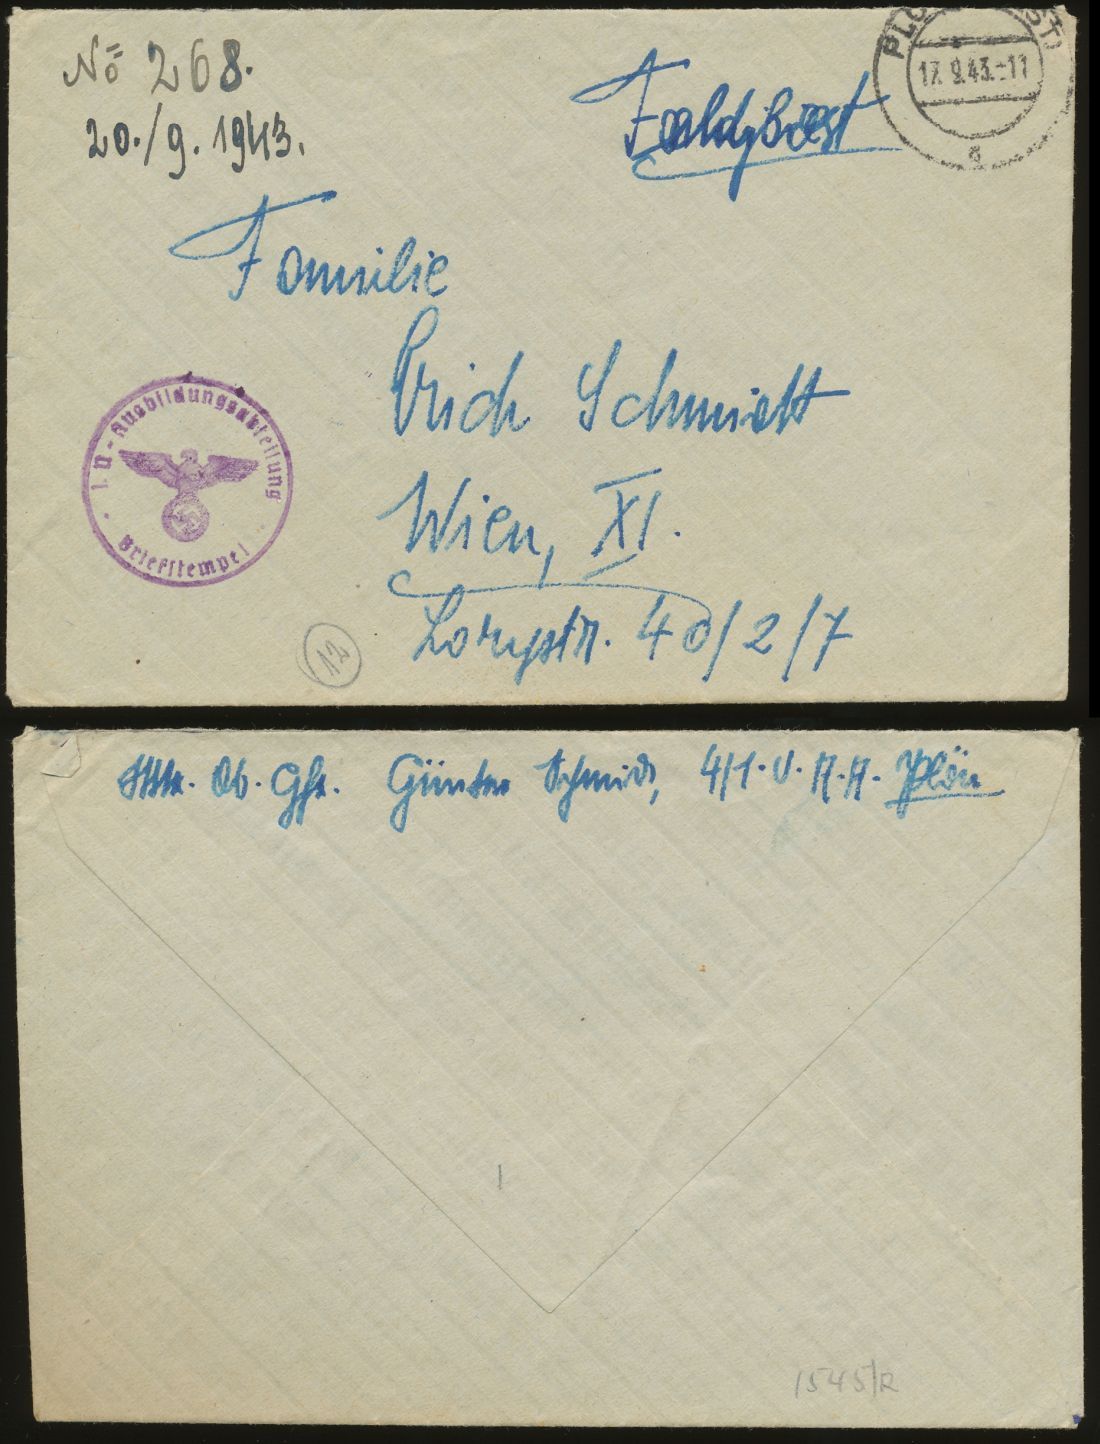 No 268.
20./9. 1943.
Feldpost
PLÖ
17.9.43.-11
a
Familie
Erich Schmidt
Wien, XI.
Lorystr. 40/2/7
1. U-Ausbildungsabteilung
Briefstempel
12
Mtr. Ob. Gfr. Günter Schmidt, 4/1. U. A. A. Plön
1545/R